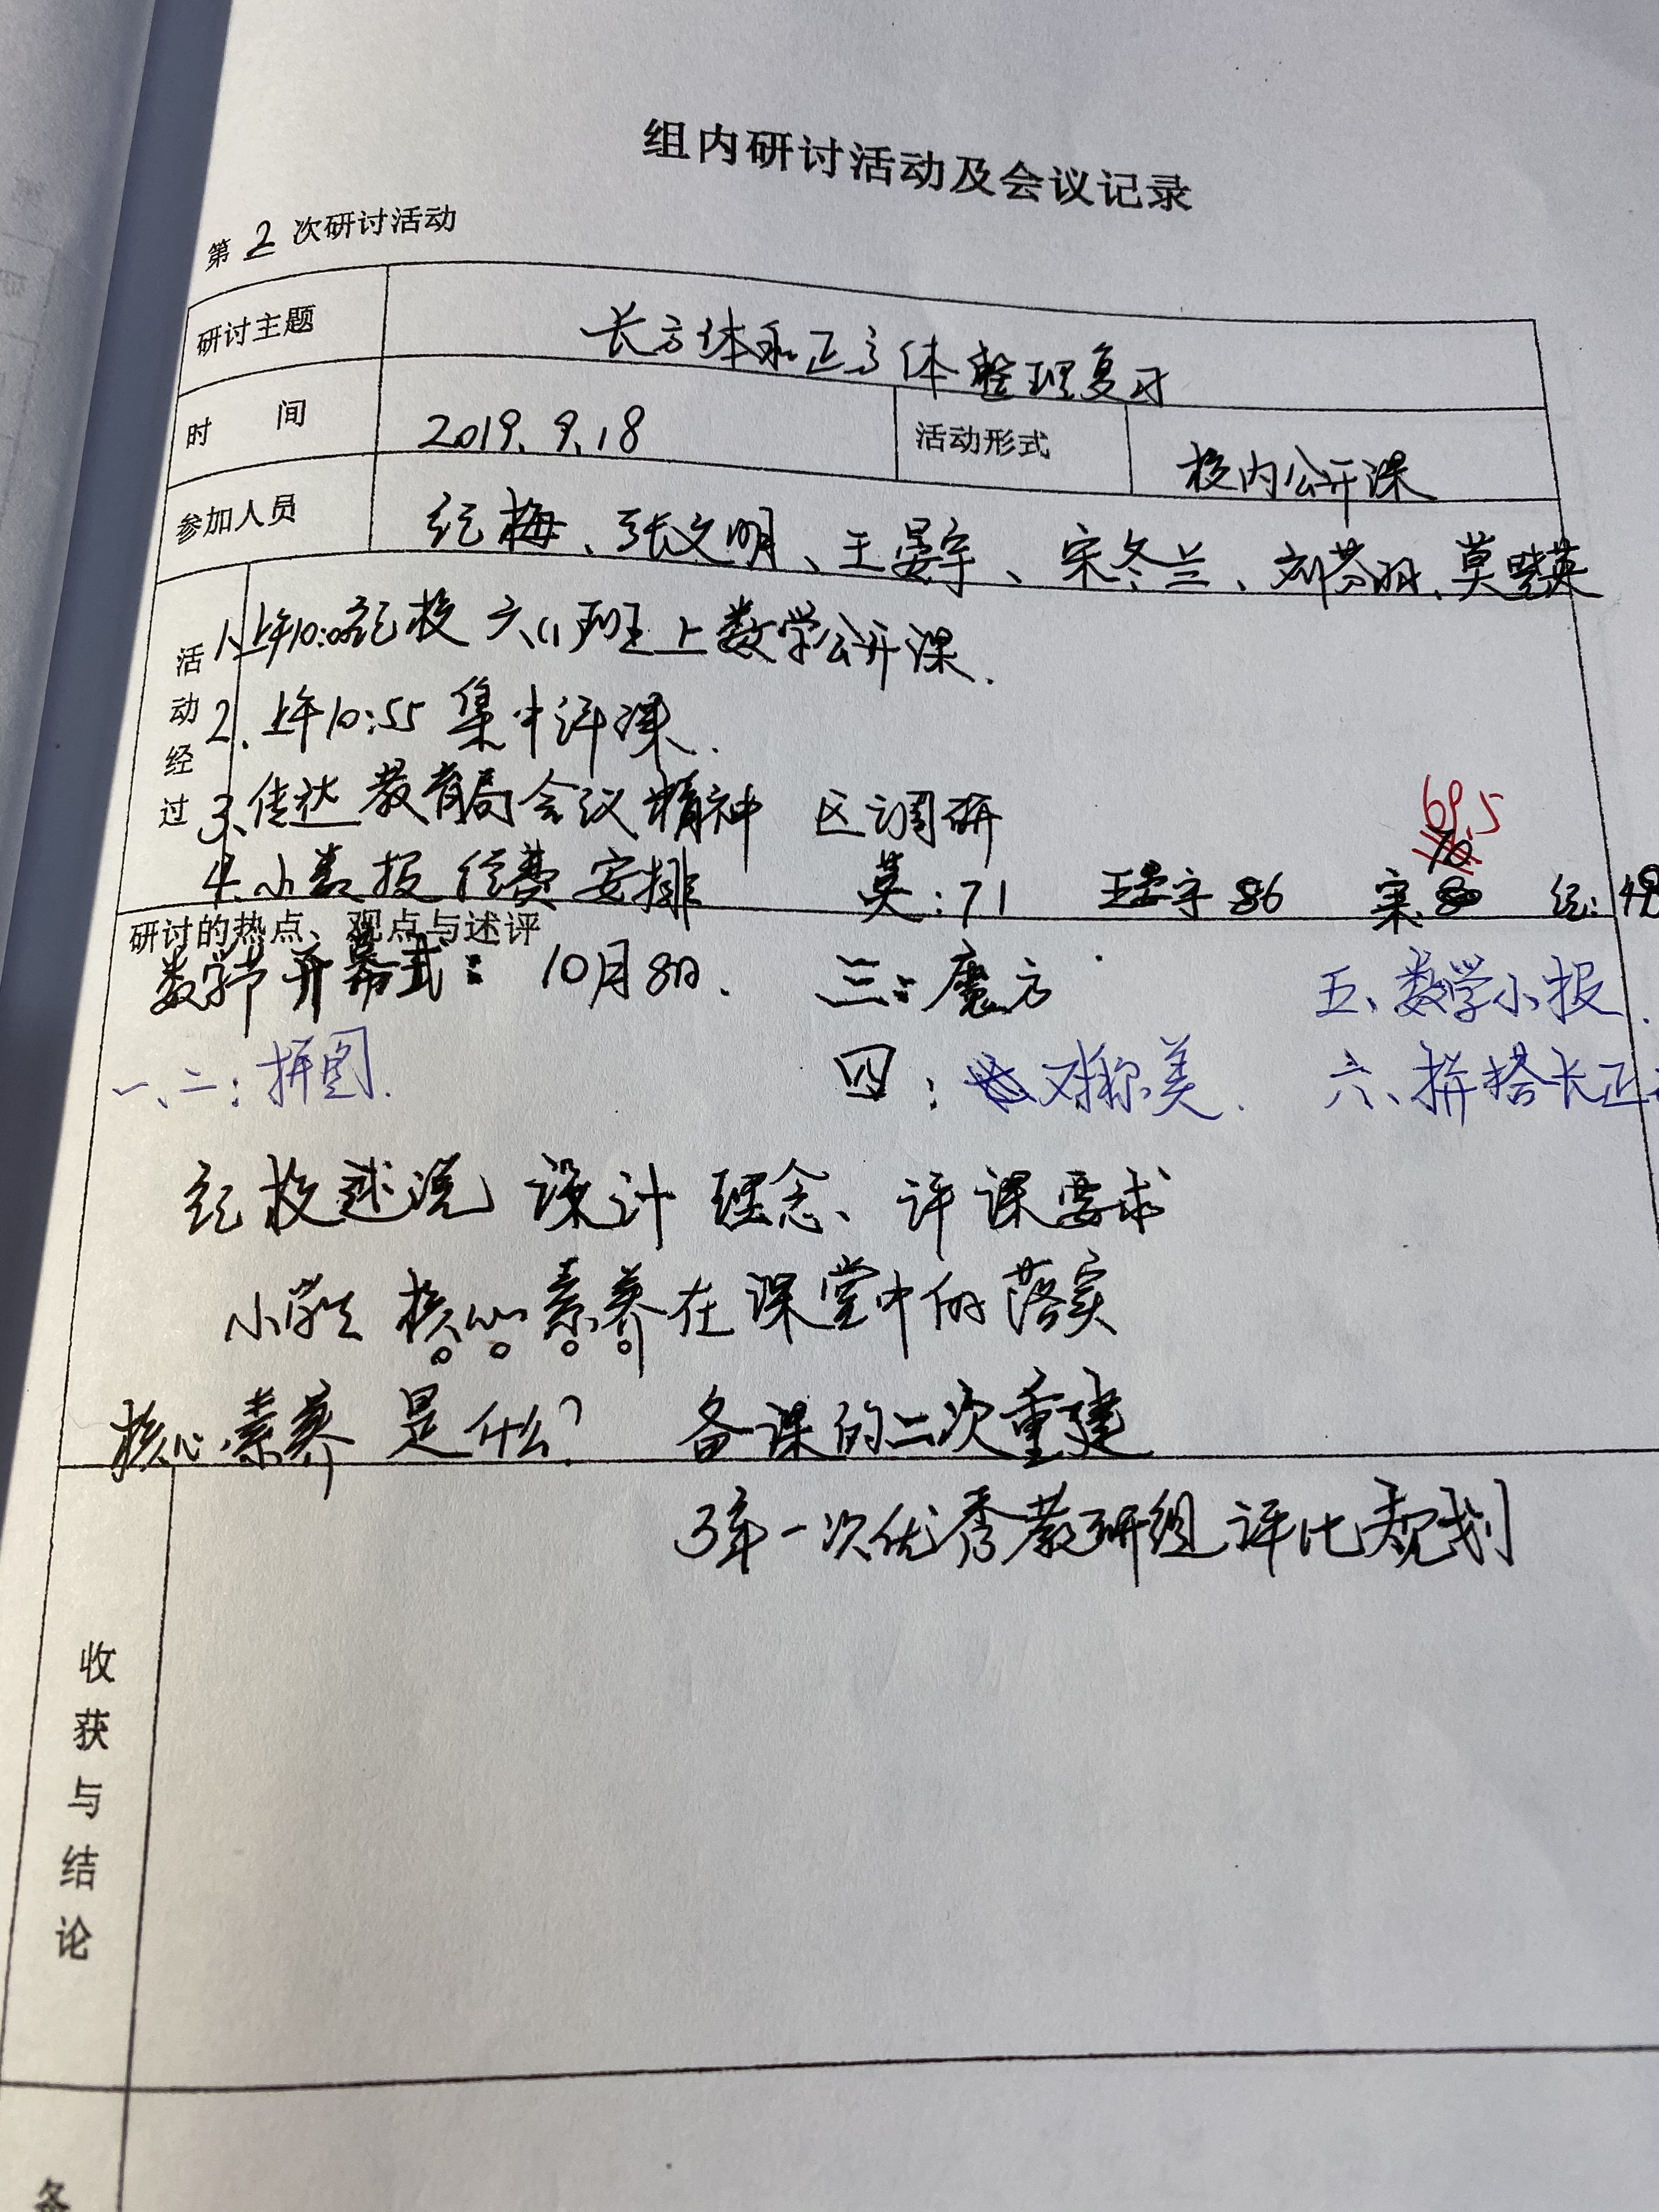 组内研讨活动及会议记录
第 2 次研讨活动
研讨主题 长方体和正方体整理复习
时 间 2019.9.18 活动形式 校内公开课
参加人员 纪梅、张文明、王晏宇、宋冬兰、刘芬丽、莫晓英
活动经过
1、上午10:00纪校 六(1)班上数学公开课.
2、上午10:55 集中评课.
3、传达教育局会议精神 区调研
69.5
70
4.小数报 费安排 莫:71 王晏宇 86 宋: 纪:48
研讨的热点、观点与述评
数学节开幕式: 10月8日. 三:魔方 五、数学小报.
一、二:拼图. 四: 对称美. 六、拼搭长正
纪校述说 设计 理念、评课要求
小学生 核心素养在课堂中的落实
核心素养 是什么? 备课的二次重建
3年一次优秀教研组评比规划
收获与结论